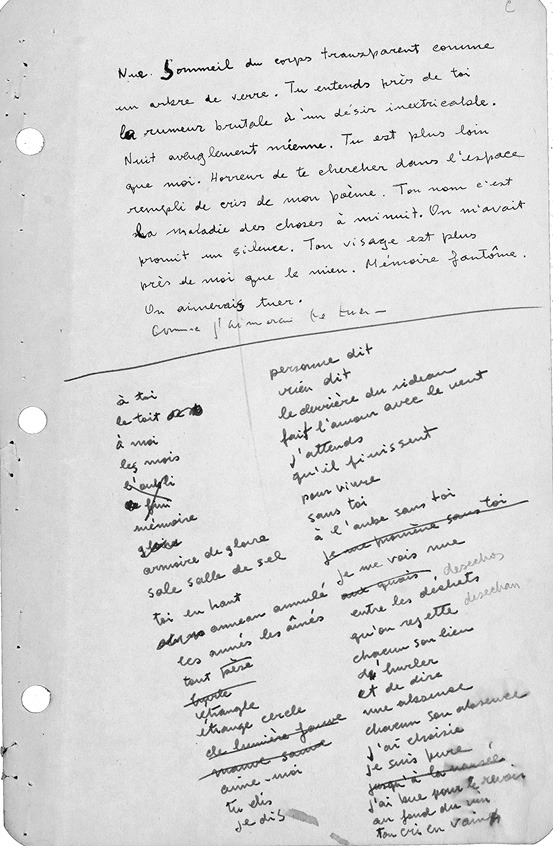 C
Nue. Sommeil du corps transparent comme
un arbre de verre. Tu entends près de toi
la rumeur brutale d'un désir inextricable.
Nuit aveuglement mienne. Tu est plus loin
que moi. Horreur de te chercher dans l'espace
rempli de cris de mon poème. Ton nom c'est
la maladie des choses à minuit. On m'avait
promit un silence. Ton visage est plus
près de moi que le mien. Mémoire fantôme.
On aimerais tuer.
Comme j'aimerai te tuer —
à toi
le toit
à moi
les mois
l'oubli
mémoire
gloire
armoire de gloire
sale salle de sel
toi en haut
anneau annulé
les annés les aînés
tout
étrangle
étrange cercle
de lumière fauve
mauve
aime-moi
tu dis
je dis
personne dit
rien dit
le derrière du rideau
fait l'amour avec le vent
j'attends
qu'il finissent
pour vivre
sans toi
à l'aube sans toi
je me promène sans toi
je me vais nue
aux quais desechos
entre les déchets
qu'on rejette desechan
chacun son lieu
d'hurler
et de dire
une absense
chacun son absence
j'ai choisie
je suis pure
jusqu'à la nausée
j'ai bue pour le revoir
au fond du vin
ton cri en vain